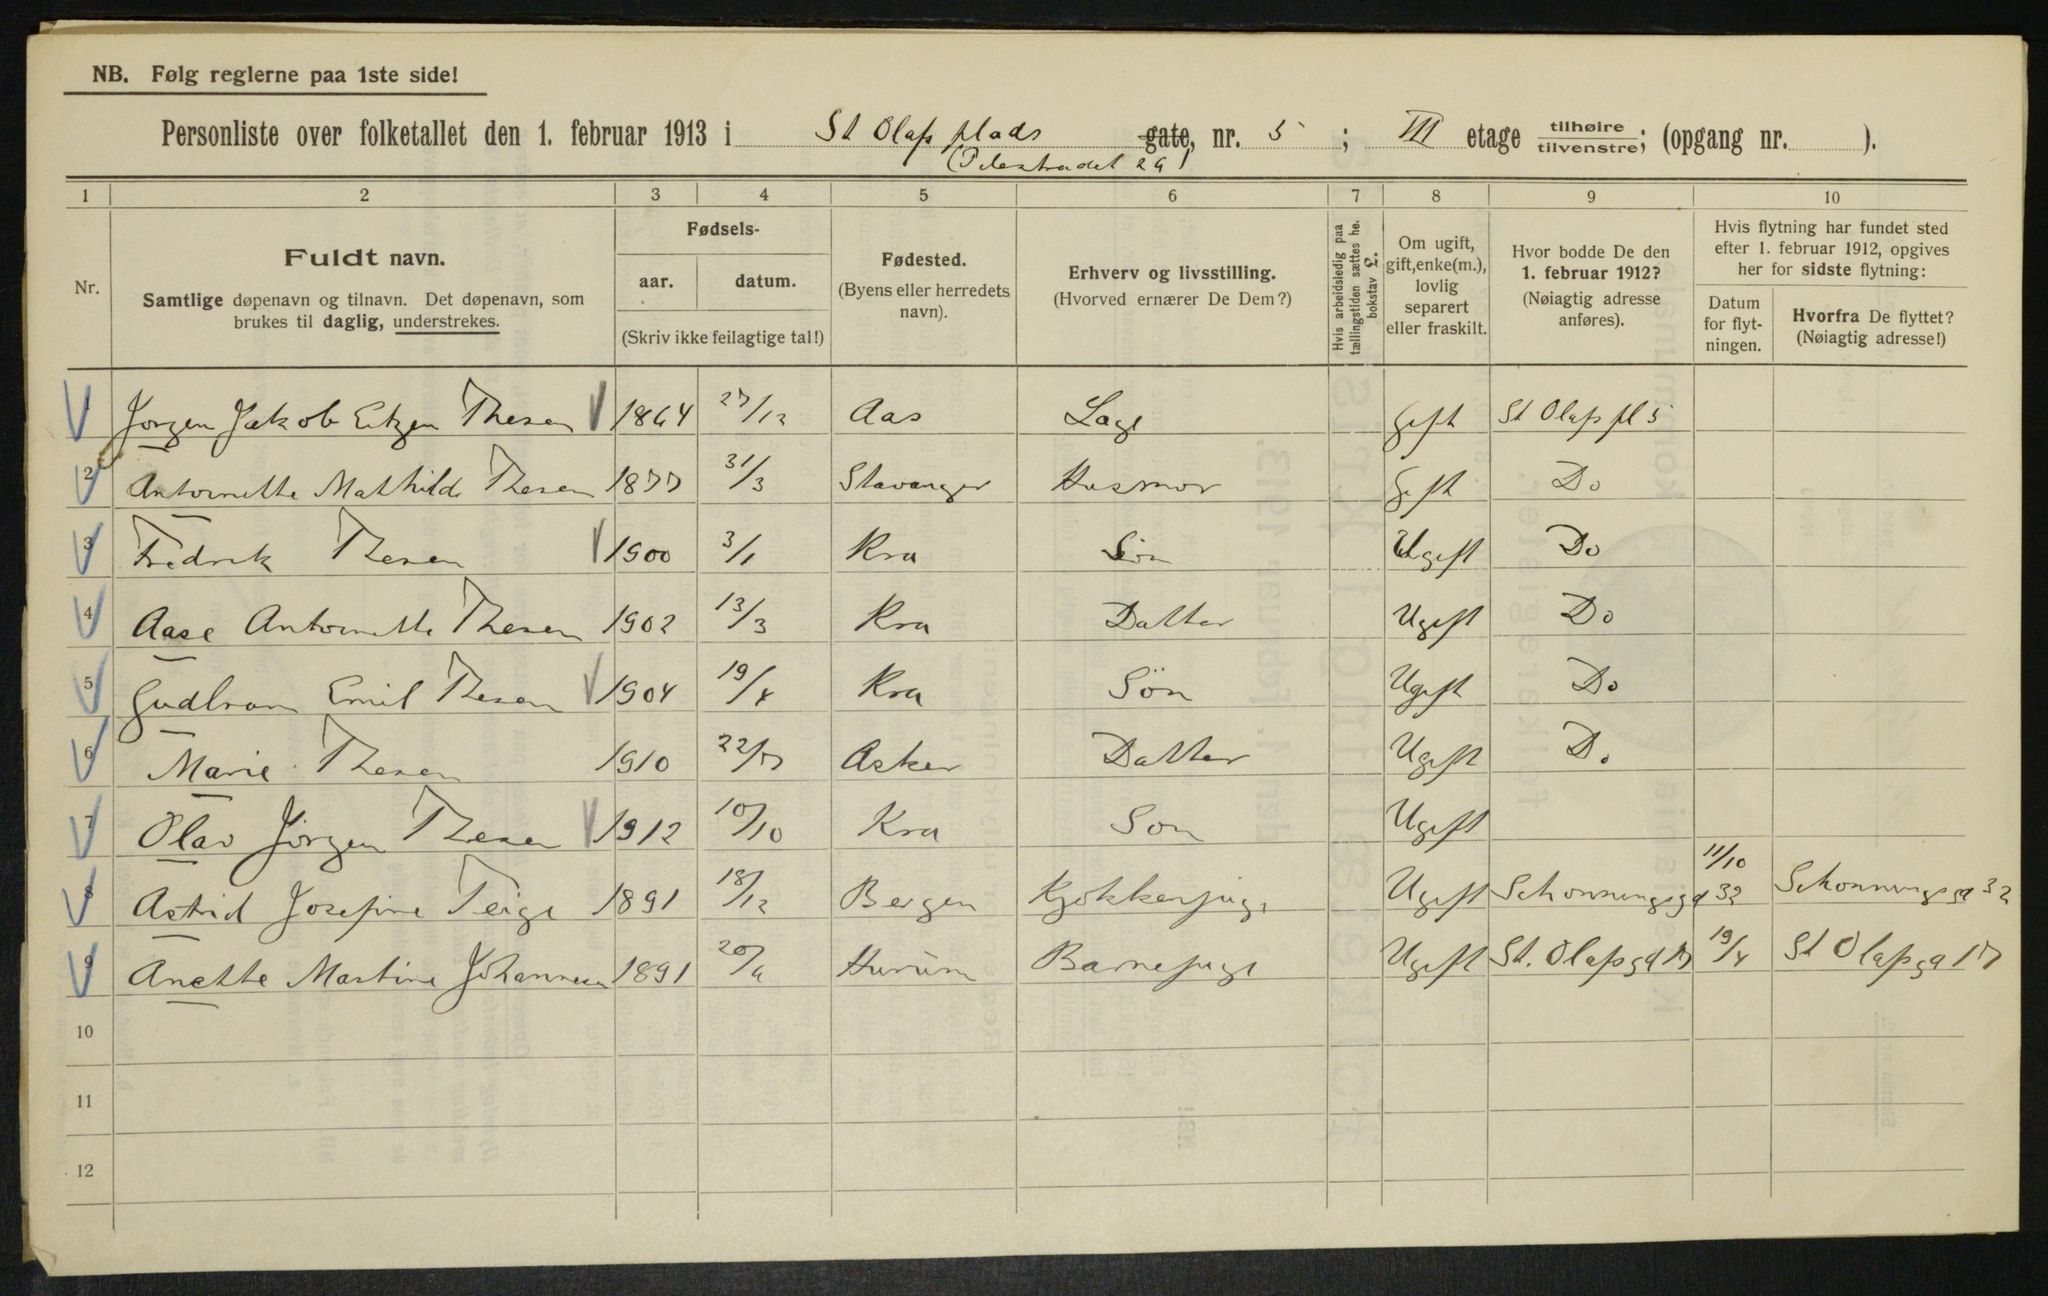 NB. Følg reglerne paa 1ste side!
Personliste over folketallet den 1. februar 1913 i St Olafs plads gate, nr. 5 ; III etage tilhøire tilvenstre; (opgang nr. ).
(Pilestrædet 29)
1 2 3 4 5 6 7 8 9 10
Nr.
Fuldt navn.
Samtlige døpenavn og tilnavn. Det døpenavn, som
brukes til daglig, understrekes.
Fødsels-
aar. datum.
(Skriv ikke feilagtige tal!)
Fødested.
(Byens eller herredets
navn).
Erhverv og livsstilling.
(Hvorved ernærer De Dem?)
Hvis arbeidsledig paa
tællingstiden sættes he.
bokstav L.
Om ugift,
gift, enke(m.),
lovlig
separert
eller fraskilt.
Hvor bodde De den
1. februar 1912?
(Nøiagtig adresse
anføres).
Hvis flytning har fundet sted
efter 1. februar 1912, opgives
her for sidste flytning:
Datum
for flyt-
ningen.
Hvorfra De flyttet?
(Nøiagtig adresse!)
1 Jørgen Jakob Eitzen Thesen 1864 27/12 Aas Læge Gift St Olafs pl 5
2 Antoinette Mathilde Thesen 1877 31/3 Stavanger Husmor Gift Do
3 Fredrik Thesen 1900 3/1 Kra Søn Ugift Do
4 Aase Antoinette Thesen 1902 13/3 Kra Datter Ugift Do
5 Gudbrand Emil Thesen 1904 19/4 Kra Søn Ugift Do
6 Marie Thesen 1910 22/7 Asker Datter Ugift Do
7 Olav Jørgen Thesen 1912 10/10 Kra Søn Ugift
8 Astrid Josefine Teige 1891 18/12 Bergen Kjøkkenpige Ugift Schønningsgd 32 11/10 Schønningsgd 32
9 Anette Martine Johannesen 1891 20/9 Hurum Barnepige Ugift St. Olafsgd 17 19/4 St Olafsgd 17
10
11
12